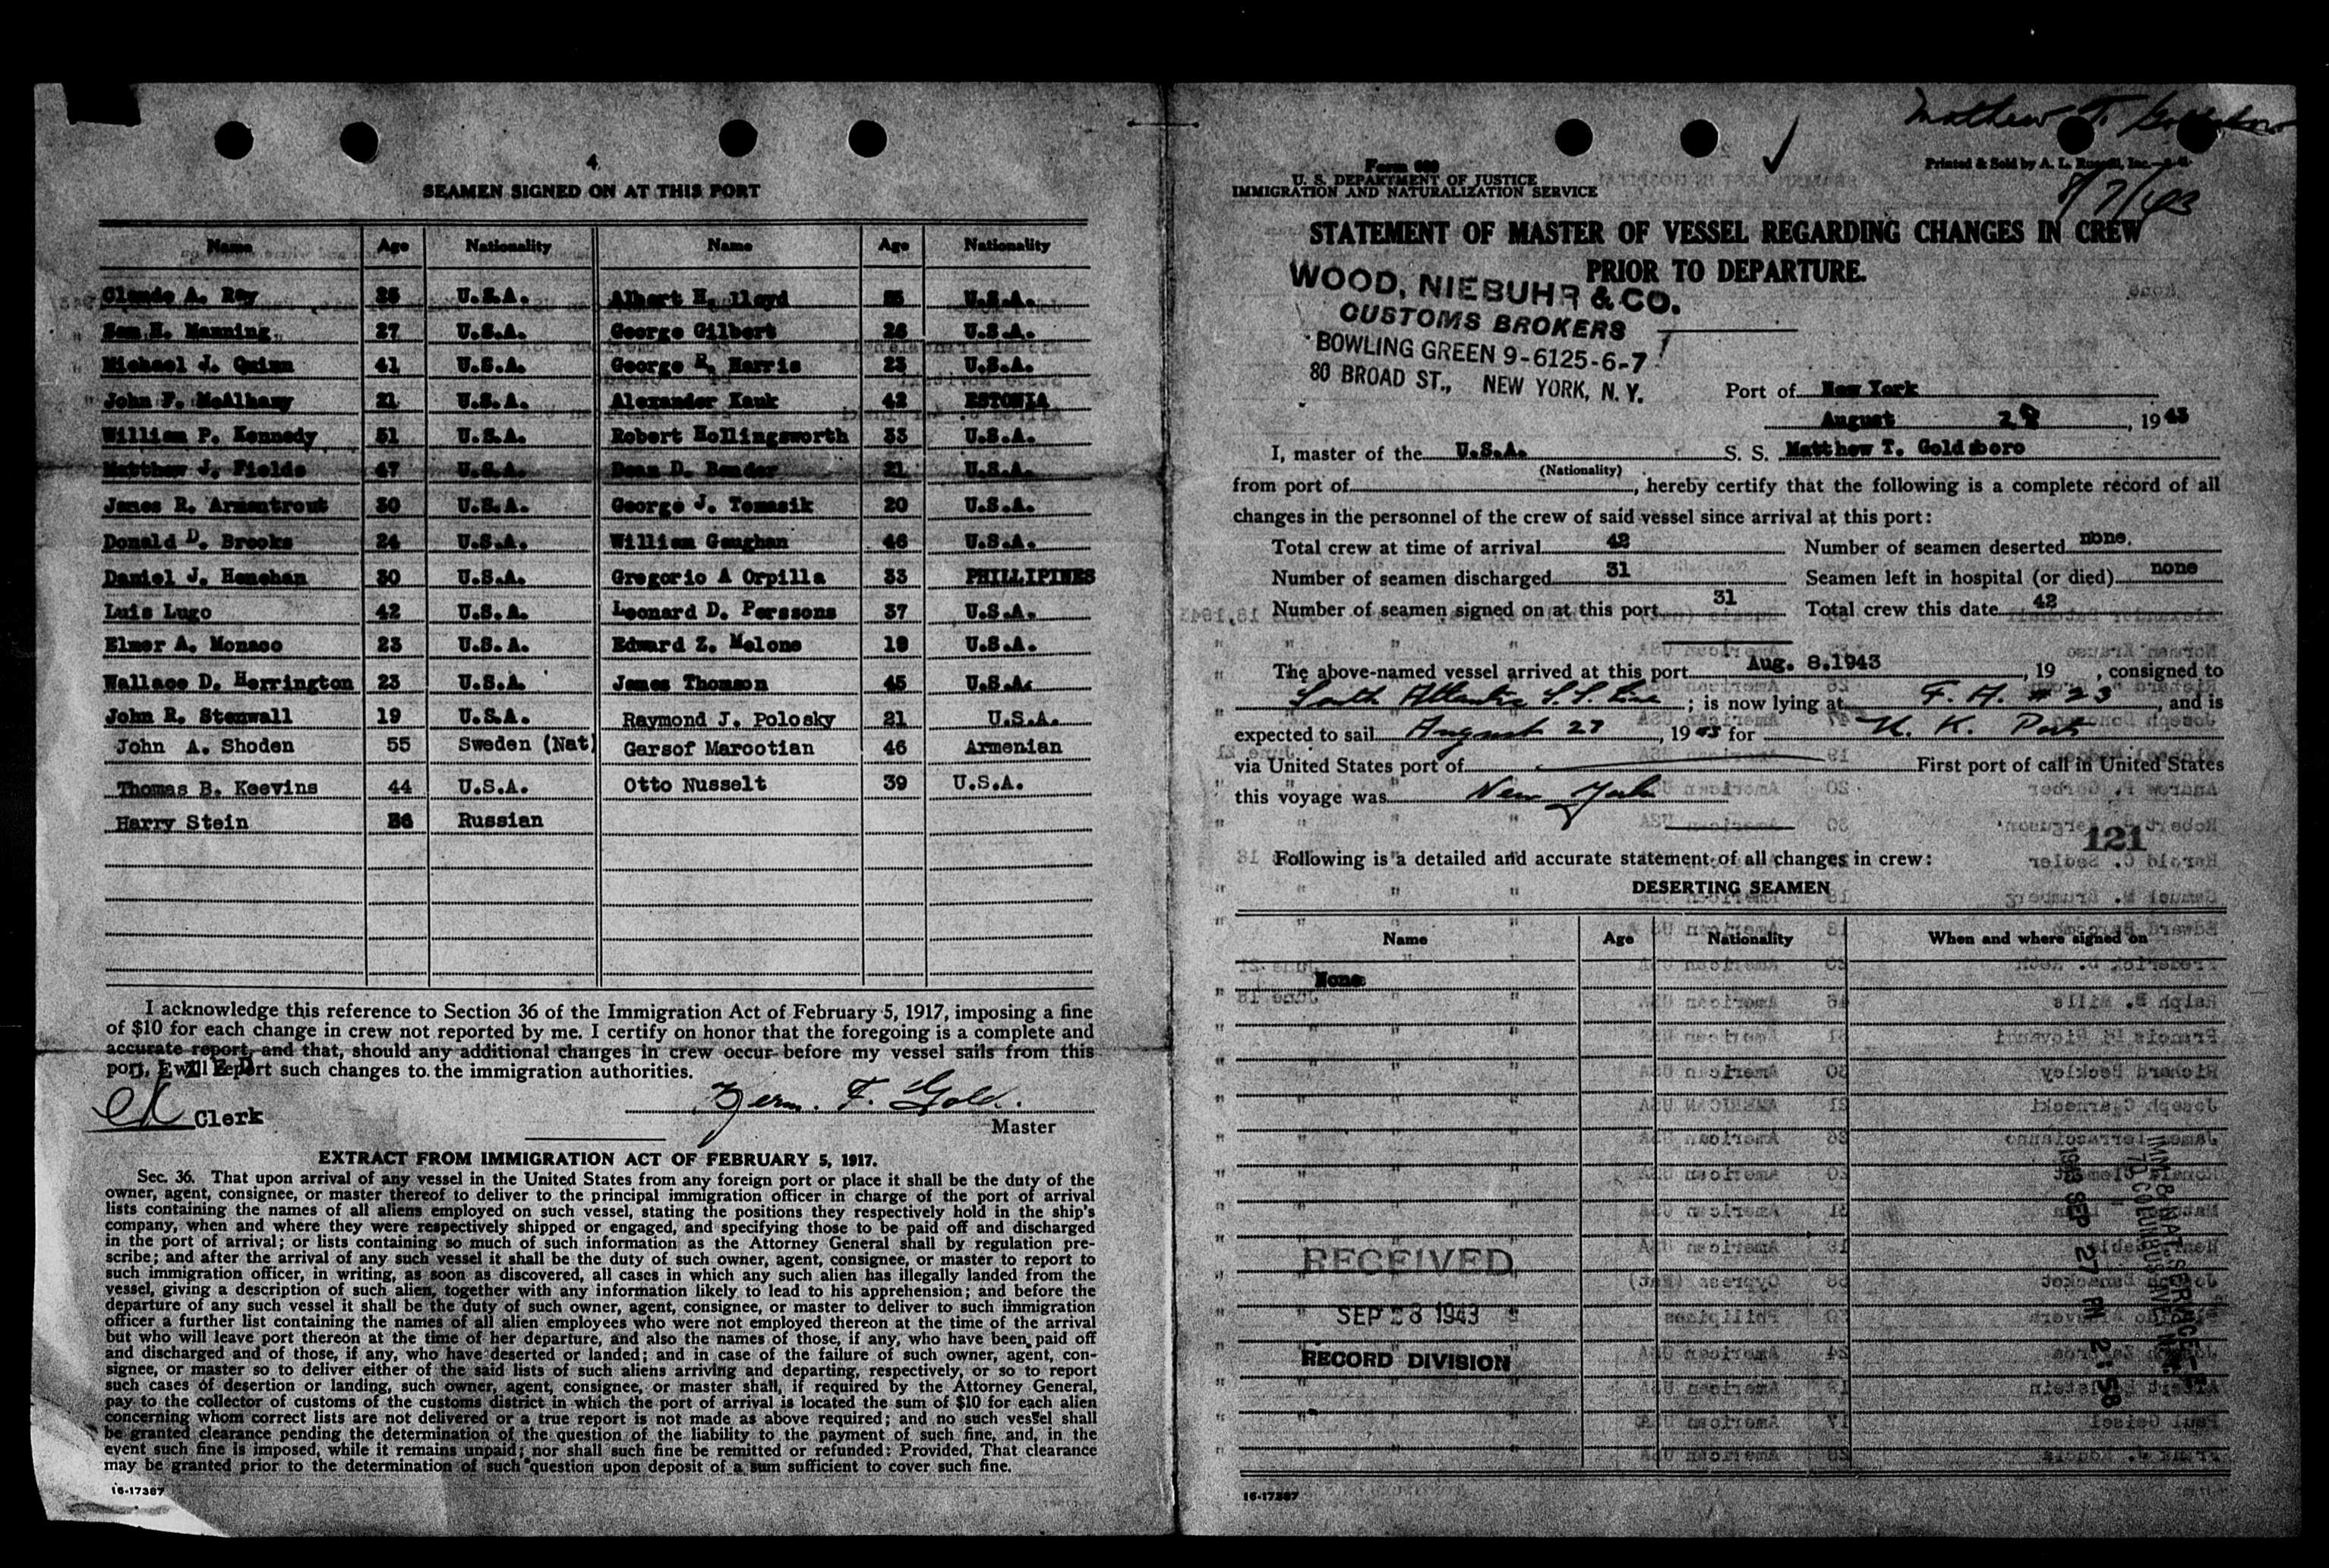 4
SEAMEN SIGNED ON AT THIS PORT
Name Age Nationality Name Age Nationality
Claude A. Ray 25 U.S.A. Albert H. Lloyd U.S.A.
Sam H. Manning 27 U.S.A. George Gilbert 26 U.S.A.
Michael J. Quinn 41 U.S.A. George R. Harris 23 U.S.A.
John F. McAlhany 21 U.S.A. Alexander Kauk 42 ESTONIA
William P. Kennedy 51 U.S.A. Robert Hollingsworth 33 U.S.A.
Matthew J. Fields 47 U.S.A. Dean D. Bender 21 U.S.A.
James R. Armentrout 30 U.S.A. George J. Tomasik 20 U.S.A.
Donald D. Brooks 24 U.S.A. William Gaughan 46 U.S.A.
Daniel J. Henehan 30 U.S.A. Gregorio A Orpilla 33 PHILLIPINES
Luis Lugo 42 U.S.A. Leonard D. Perssons 37 U.S.A.
Elmer A. Monaco 23 U.S.A. Edward Z. Melone 18 U.S.A.
Wallace D. Herrington 23 U.S.A. James Thomson 45 U.S.A.
John R. Stenwall 19 U.S.A. Raymond J. Polosky 21 U.S.A.
John A. Shoden 55 Sweden (Nat) Garsof Marootian 46 Armenian
Thomas B. Keevins 44 U.S.A. Otto Nusselt 39 U.S.A.
Harry Stein 36 Russian
I acknowledge this reference to Section 36 of the Immigration Act of February 5, 1917, imposing a fine
of $10 for each change in crew not reported by me. I certify on honor that the foregoing is a complete and
accurate report, and that, should any additional changes in crew occur before my vessel sails from this
port, I will report such changes to the immigration authorities.
Clerk
F. Gold.
Master
EXTRACT FROM IMMIGRATION ACT OF FEBRUARY 5, 1917.
Sec. 36. That upon arrival of any vessel in the United States from any foreign port or place it shall be the duty of the
owner, agent, consignee, or master thereof to deliver to the principal immigration officer in charge of the port of arrival
lists containing the names of all aliens employed on such vessel, stating the positions they respectively hold in the ship's
company, when and where they were respectively shipped or engaged, and specifying those to be paid off and discharged
in the port of arrival; or lists containing so much of such information as the Attorney General shall by regulation pre-
scribe; and after the arrival of any such vessel it shall be the duty of such owner, agent, consignee, or master to report to
such immigration officer, in writing, as soon as discovered, all cases in which any such alien has illegally landed from the
vessel, giving a description of such alien, together with any information likely to lead to his apprehension; and before the
departure of any such vessel it shall be the duty of such owner, agent, consignee, or master to deliver to such immigration
officer a further list containing the names of all alien employees who were not employed thereon at the time of the arrival
but who will leave port thereon at the time of her departure, and also the names of those, if any, who have been paid off
and discharged and of those, if any, who have deserted or landed; and in case of the failure of such owner, agent, con-
signee, or master so to deliver either of the said lists of such aliens arriving and departing, respectively, or so to report
such cases of desertion or landing, such owner, agent, consignee, or master shall, if required by the Attorney General,
pay to the collector of customs of the customs district in which the port of arrival is located the sum of $10 for each alien
concerning whom correct lists are not delivered or a true report is not made as above required; and no such vessel shall
be granted clearance pending the determination of the question of the liability to the payment of such fine, and, in the
event such fine is imposed, while it remains unpaid; nor shall such fine be remitted or refunded: Provided, That clearance
may be granted prior to the determination of such question upon deposit of a sum sufficient to cover such fine.
16-17387
Mathew T.
Form 689
Printed & Sold by A. L. Russell, Inc.
U. S. DEPARTMENT OF JUSTICE
IMMIGRATION AND NATURALIZATION SERVICE
8/7/43
STATEMENT OF MASTER OF VESSEL REGARDING CHANGES IN CREW
PRIOR TO DEPARTURE.
WOOD, NIEBUHR & CO.
CUSTOMS BROKERS
BOWLING GREEN 9-6125-6-7
80 BROAD ST., NEW YORK, N. Y.
Port of New York
August 28, 1943
I, master of the U.S.A. S. S. Matthew T. Goldsboro
(Nationality)
from port of , hereby certify that the following is a complete record of all
changes in the personnel of the crew of said vessel since arrival at this port:
Total crew at time of arrival 42 Number of seamen deserted none.
Number of seamen discharged 31 Seamen left in hospital (or died) none
Number of seamen signed on at this port 31 Total crew this date 42
The above-named vessel arrived at this port Aug. 8.1943, 19 , consigned to
South Atlantic S.S. Line ; is now lying at F. A. # 23, and is
expected to sail August 27, 1943 for U. K. Port
via United States port of First port of call in United States
this voyage was New York
121
Following is a detailed and accurate statement of all changes in crew:
DESERTING SEAMEN
Name Age Nationality When and where signed on
None
RECEIVED
SEP 28 1943
RECORD DIVISION
IMM. & NAT. SERVICE
70 COLUMBUS AVE. N.Y.
1943 SEP 27 PM 2:58
16-17387